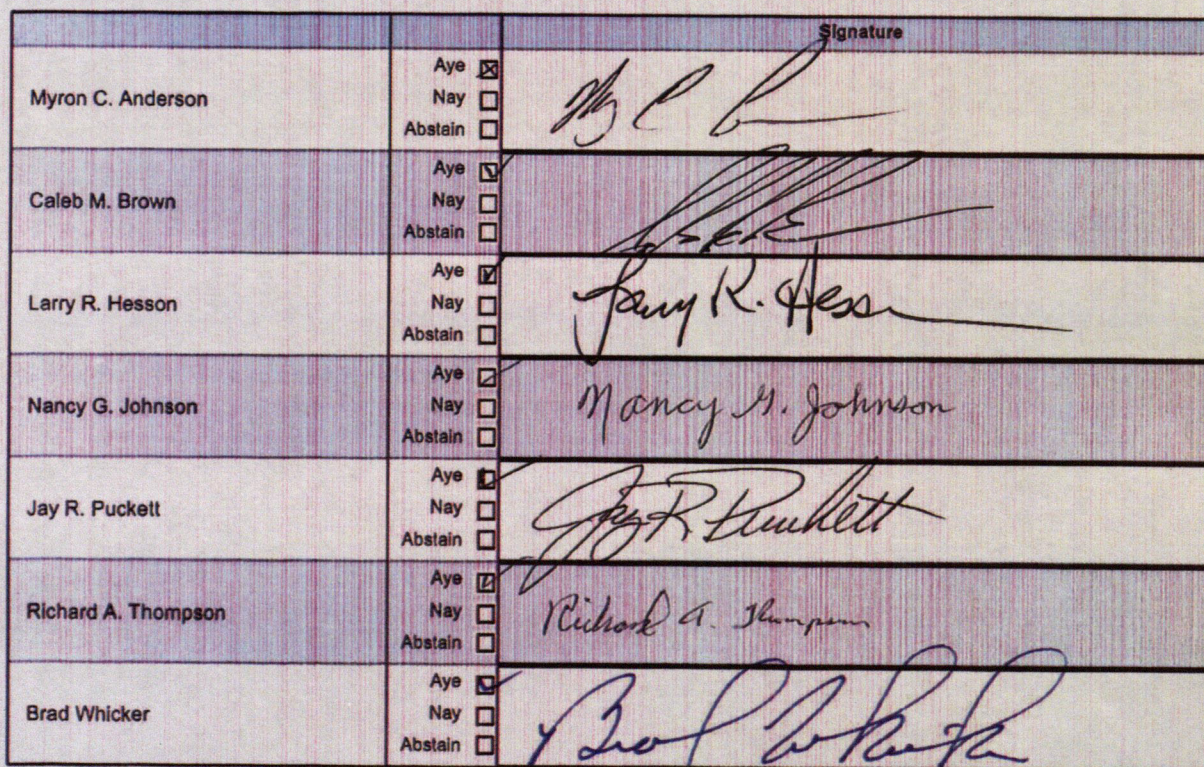 Signature
Aye ☒
Myron C. Anderson
Nay ☐
Abstain ☐
Aye ☑
Caleb M. Brown
Nay ☐
Abstain ☐
Aye ☑
Larry R. Hesson
Nay ☐
Abstain ☐
Larry R. Hesson
Aye ☑
Nancy G. Johnson
Nay ☐
Abstain ☐
Nancy G. Johnson
Aye ☑
Jay R. Puckett
Nay ☐
Abstain ☐
Jay R. Puckett
Aye ☑
Richard A. Thompson
Nay ☐
Abstain ☐
Richard A. Thompson
Aye ☑
Brad Whicker
Nay ☐
Abstain ☐
Brad Whicker